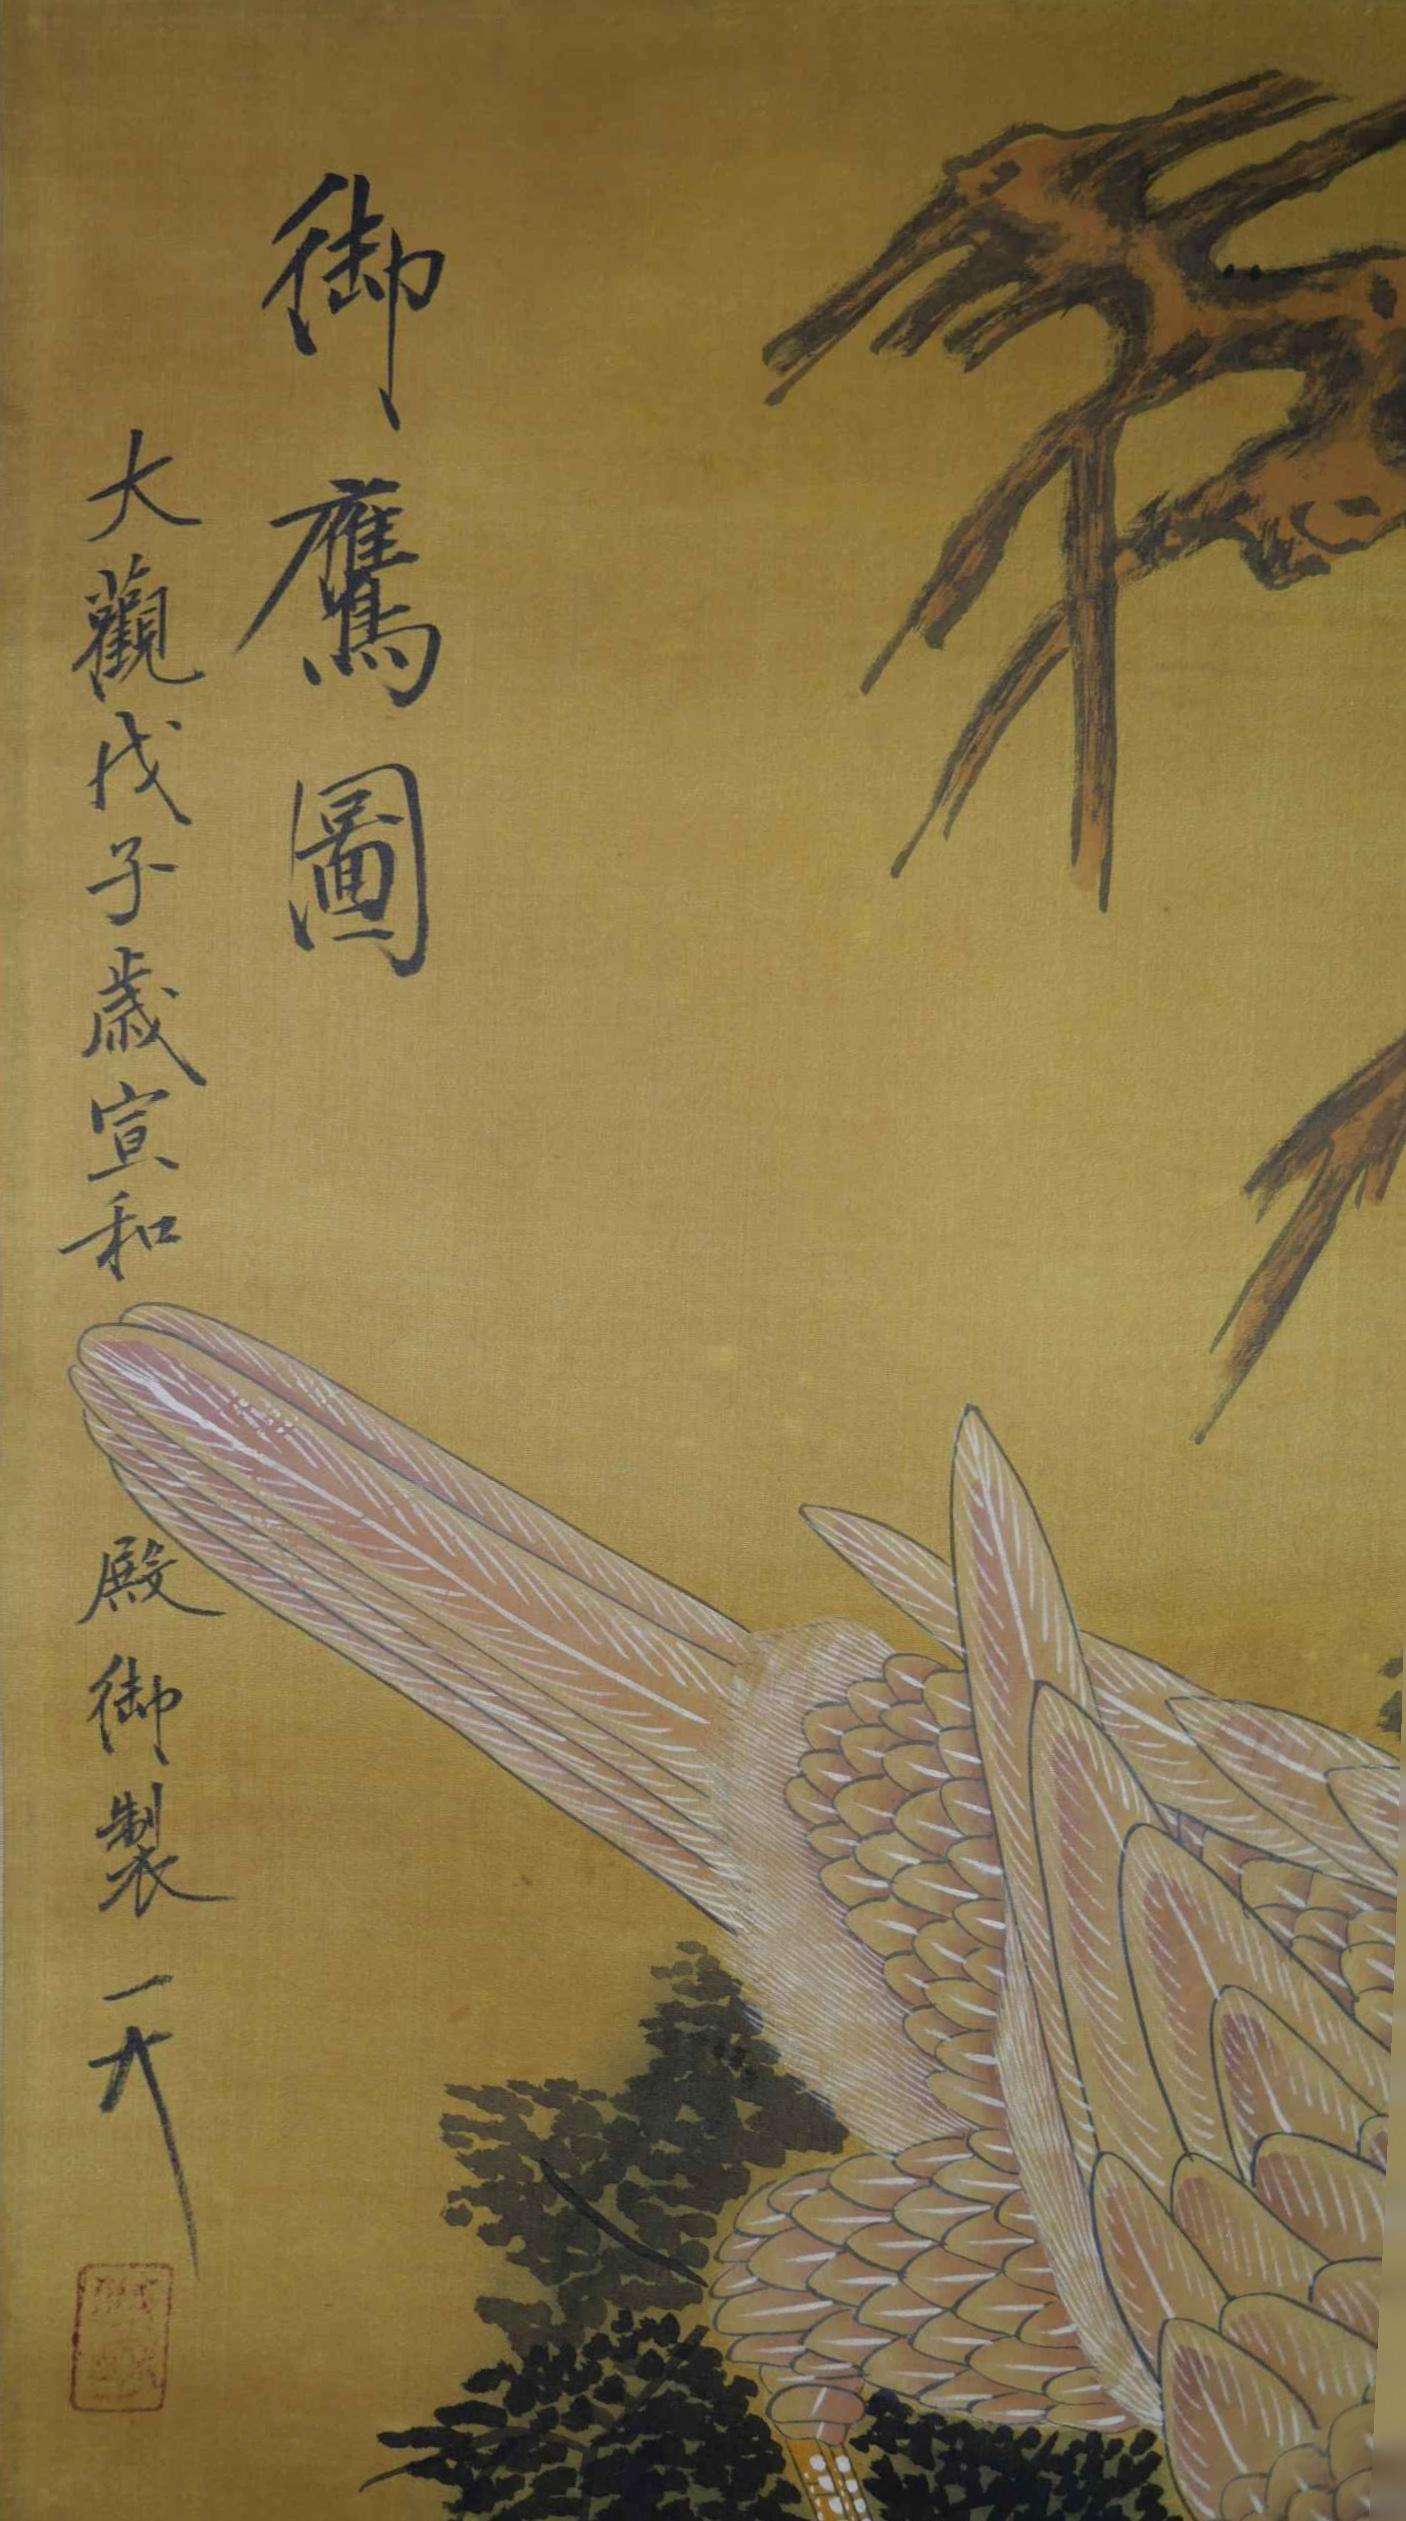 御鷹圖
大觀戊子歲宣和殿御製